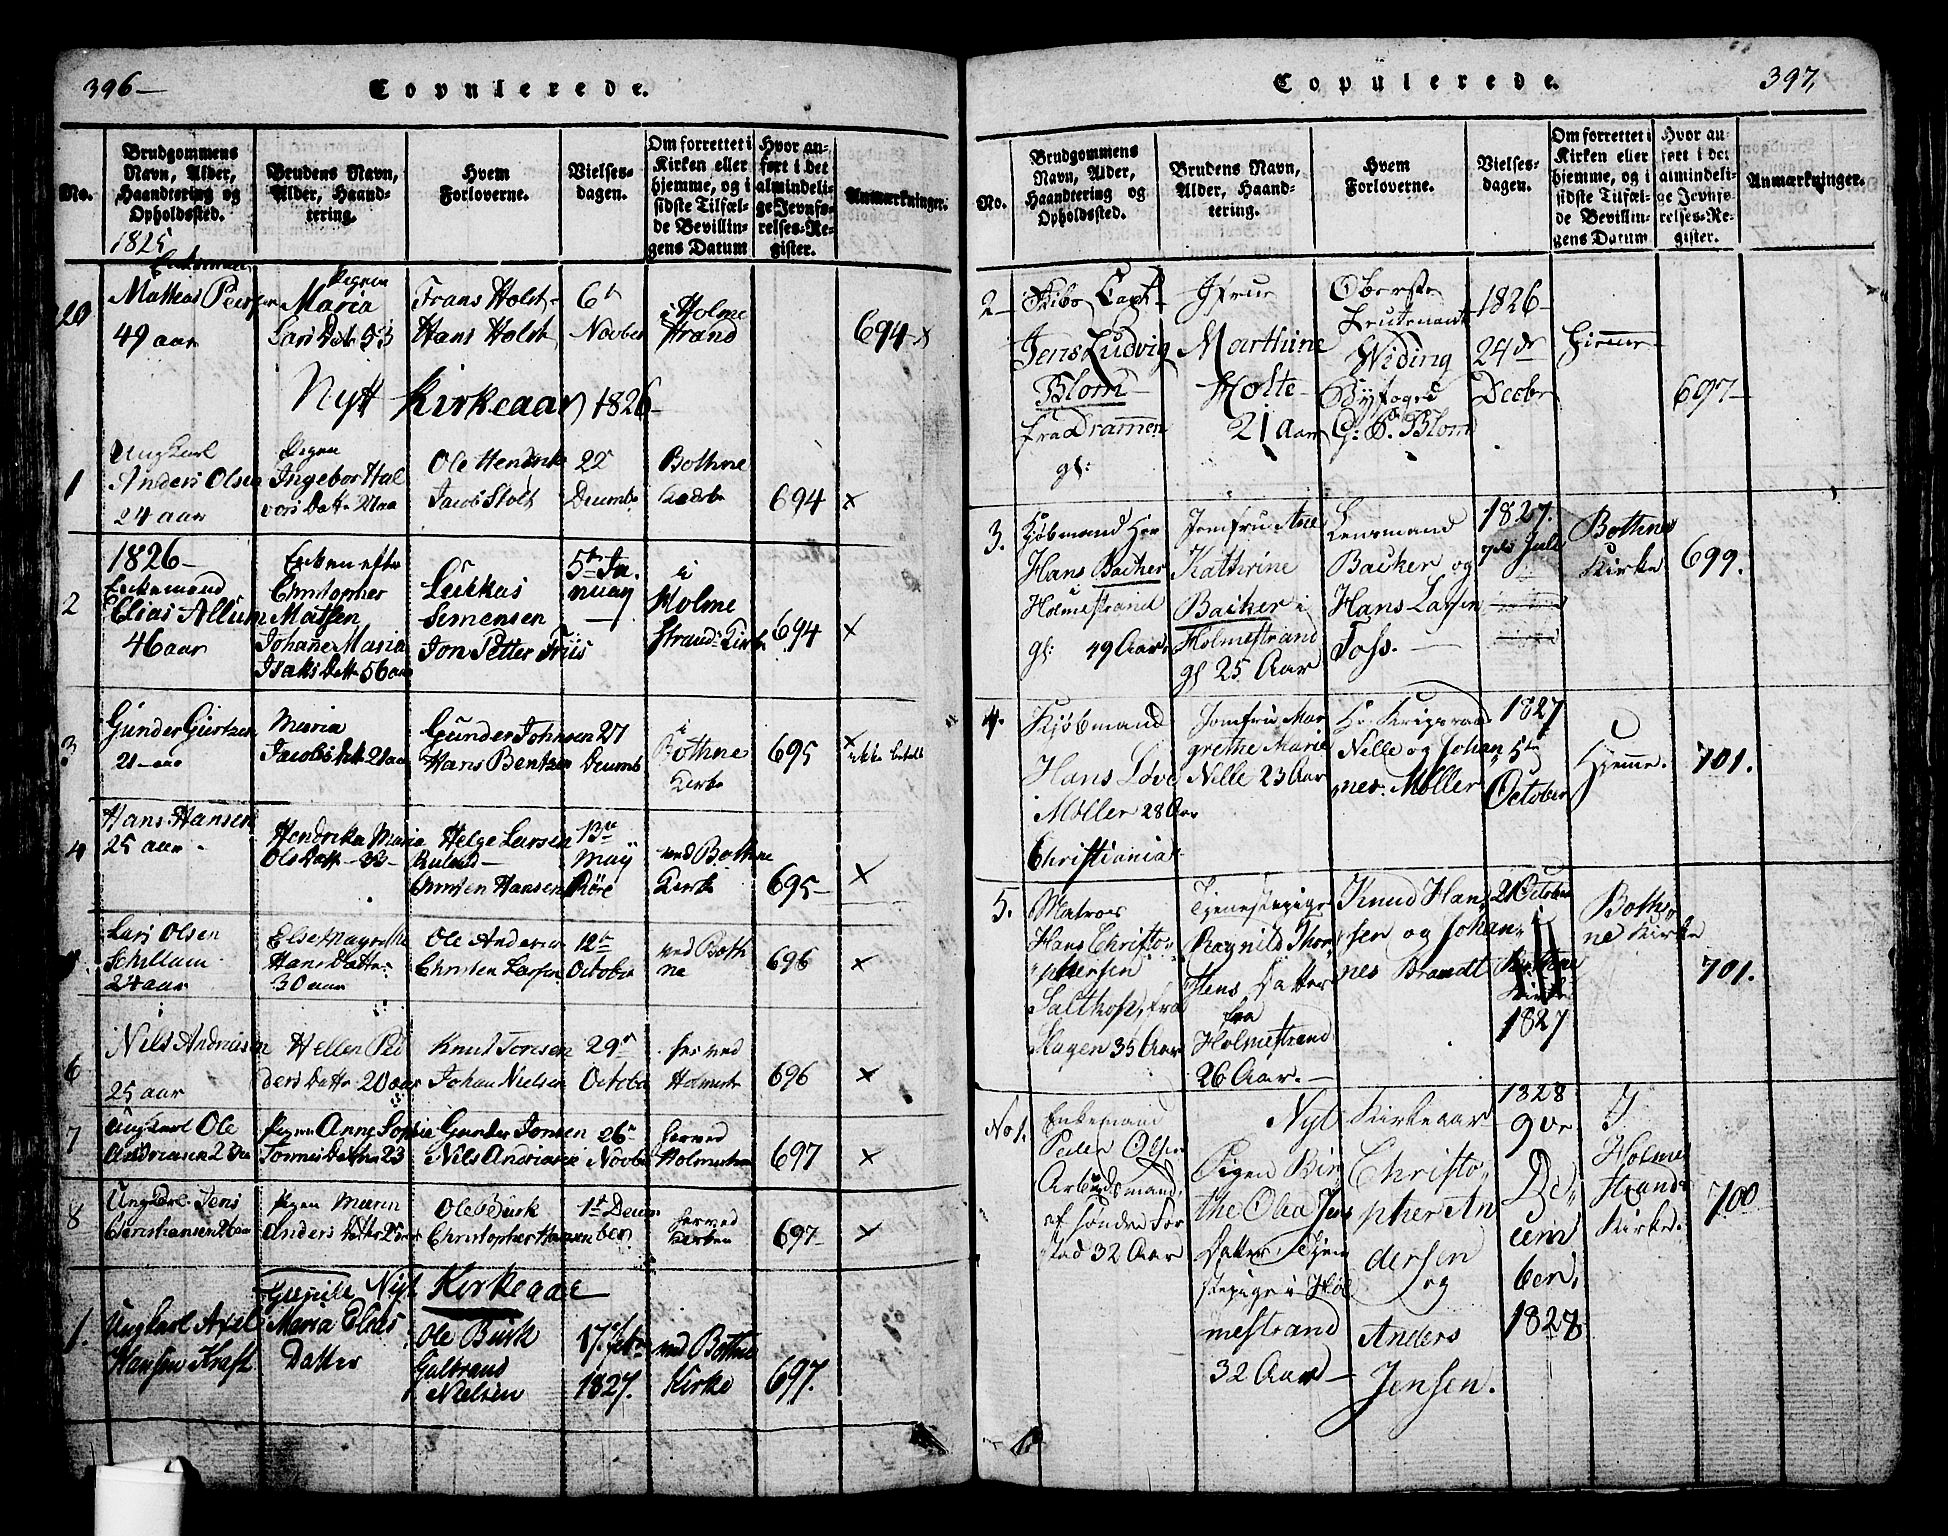 396–
Copulerede.
No.
Brudgommens
Navn, Alder,
Haandtering og
Opholdssted.
Brudens Navn,
Alder, Haand-
tering.
Hvem
Forloverne.
Vielses-
dagen.
Om forrettet i
Kirken eller
hjemme, og i
sidste Tilfæl-
de Bevillin-
gens Datum
Hvor an-
ført i det
almindeli-
ge Jevnfø-
relses-Re-
gister.
Anmærkninger.
1825
20
Enkemand
Mathias
49 aar
Pigen
Maria
Lars Dat 53
Frans Holst
Hans Holst
6t
Novber
i Holme
strand
694 x
Nytt Kirkeaar 1826
1
Ungkarl
Anders Olsen
24 aar
Pigen
Ingebor Hal
vors Datt
Ole Hendrik
Jacob Stolt
22
Decembr
Bothne
694
x
1826–
2
Enkemand
Elias Allum
46 aar
Enken efter
Christopher
Matsen
Johane Maria
Isaks Datt 56 aar
Lukkas
Semensen
Jon Petter Friis
5te Ja
nuay
i
Holme
Strands Kirk
694
x
3
Gunder
21 aar
Maria
Jacobs Datt 21 aar
Gunder Johnsen
Hans Bentsen
27
Decemb
i
Bothne
Kirke
695
x
ikke betalt
4
Hans Hansen
25 aar
Hendrika Maria
Ols Datt 33
Helge Larsen
Christen Hansen Röre
13de
May
ved Bothne
Kirke
695–
x
Lars Olsen
24 aar
Else
Hans Datter
30 aar
Ole Andersen
Christen Larsen
12te
October
ved Both
ne
696
x
6
Nils Andreasen
25 aar
Hellen Ped
ders Datt 20 aar
Knut
Johan Nielsen
29de
October
her ved
Holmestr
696
x
7
Ungkarl Ole
Andreasen
Pigen Anne Sophie
23
Gunder Jonsen
Nils Andreasen
26
Novbr
her ved
Holmestrand
697
x
8
Ungkarl Jens
Pigen Maren
Anders Datter
Ole Burk
Christopher Hansen
1st Decem
ber
her ved
Kirken
697–
x
Nyt Kirkeaar
1.
Ungkarl Axel
Hansen Kraft
Gunild
Maria Elias
Datter
Ole Burk
Gulbrand
Nielsen
17de Febr
1827.
ved Bothne
Kirke
697.
397,
Copulerede.
No.
Brudgommens
Navn, Alder,
Haandtering og
Opholdssted.
Brudens Navn,
Alder, Haand-
tering.
Hvem
Forloverne.
Vielses-
dagen.
Om forrettet i
Kirken eller
hjemme, og i
sidste Tilfæl-
de Bevillin-
gens Datum
Hvor an-
ført i det
almindeli-
ge Jevnfø-
relses-Re-
gister.
Anmærkninger.
2–
Capt
Jens Ludvig
Blom
fra Drammen
gl:
Jfrue
Marthine
Holte
21 Aar
Oberste
Leutenant
Widing
Byfoged
G: P. Blom
1826–
24de
Decbr
697–
3.
Kjöbmand Her
Hans Backer
Holmestrand
gl: 49 Aar
Jomfru Ane
Kathrine
Backer i
Holmestrand
gl 25 Aar
Lensmand
Backer og
Hans Larsen
Foss.–
1827.
7de Juli
Bothne
Kirke
699.
4.
Kjöbmand
Hans Löve
Möller 28 Aar
Christiania
Jomfru Mar
grethe Marie
Nille 23 Aar
Hr. Krigsraad
Nelle og Johan
nes. Möller
1827
5te
October
Hjemme.
701.
5.
Matros
Hans Christo
phersen
Salthose, fra
Hagen 35 Aar
Tjenestepige
Ragnild Thor
stens Datter
fra
Holmestrand
26 Aar.–
Knud Han
sen og Johan
nes Brandt
21 October
1827
Both
ne Kirke
701.
Nyt Kirkeaar
No 1.
Enkemand
Peder Olsen
Arbeidsmand,
af Söndre For
stad 32 Aar
Pigen Bir
the Olea Jens
Datter, Tjene
stepige i Hol
mestrand
32 Aar–
Christo
pher An
dersen
og
Anders
Jensen.
1828
9de
De
cem
ber,
1828
I
Holme
strands
Kirke.
700